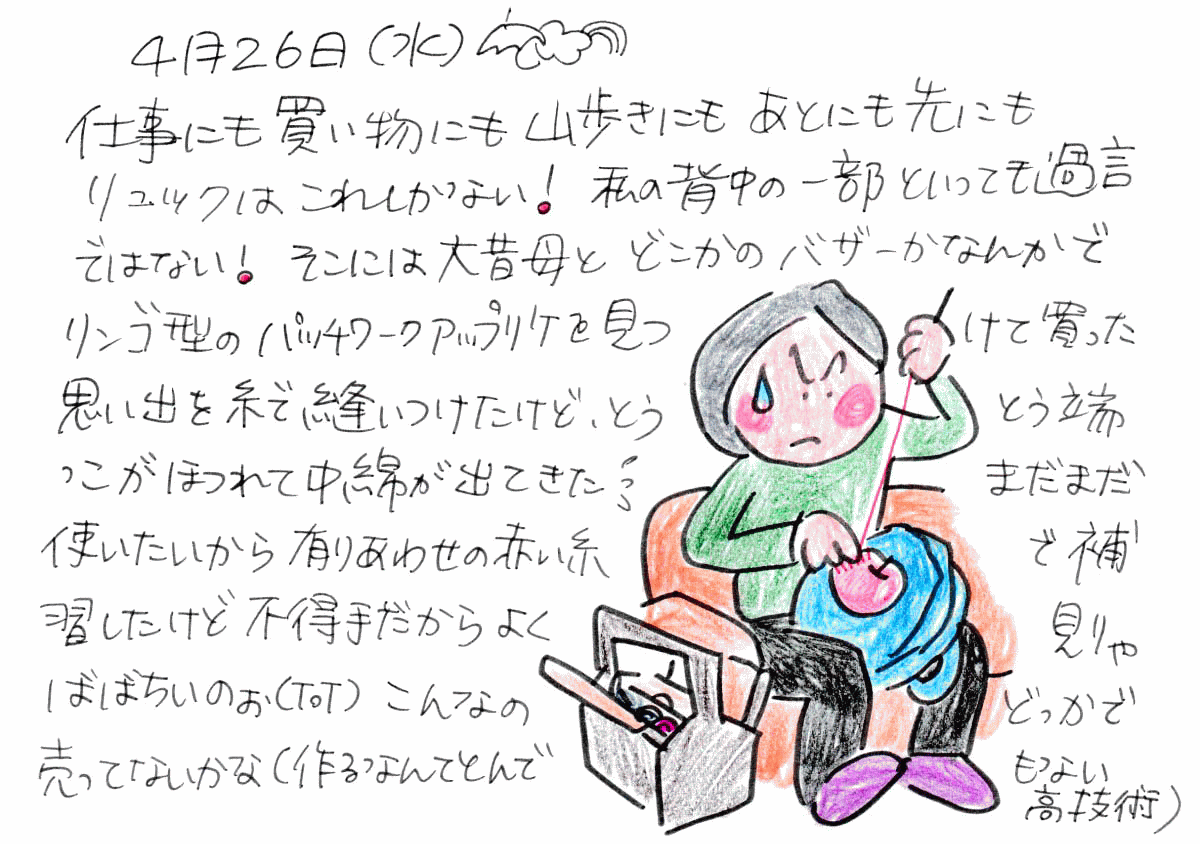 4月26日（水）
仕事にも買い物にも山歩きにもあとにも先にも
リュックはこれしかない！私の背中の一部といっても過言
ではない！そこには大昔母とどこかのバザーかなんかで
リンゴ型のパッチワークアップリケを見つけて買った
思い出を糸で縫いつけたけど、とうとう端
っこがほつれて中綿が出てきた まだまだ
使いたいから有りあわせの赤い糸で補
習したけど不得手だからよく見りゃ
ばばちいのぉ（ToT）こんなのどっかで
売ってないかな（作るなんてとんでもない
高技術）